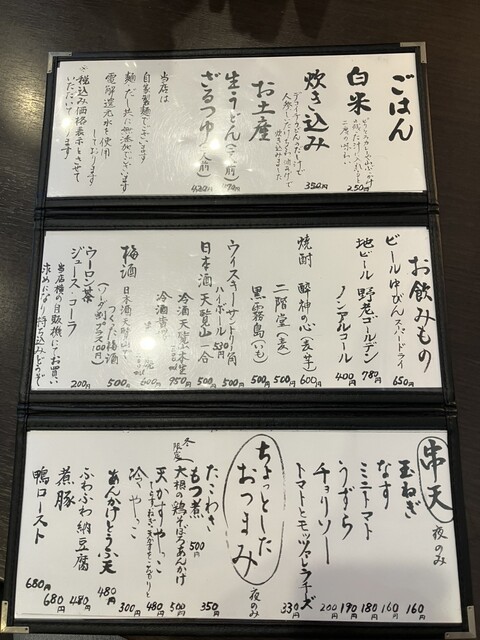 ごはん
白米
250円
炊き込み
350円
お土産
生うどん
ざるつゆ
400円
当店は
自家製麺でございます
麺・だし共に無添加でございます
電解還元水を使用
しております
※税込み価格表示とさせて
いただいております
お飲みもの
ビール中びん スーパードライ 650円
地ビール 野老ゴールデン 780円
ノンアルコール 400円
焼酎 酔神の心(麦・芋) 600円
二階堂(麦) 500円
黒霧島(いも) 500円
ウイスキー サントリー角 500円
ハイボール 530円
日本酒 天覧山 一合 500円
冷酒 天覧山
950円
冷酒
600円
梅酒
500円
ウーロン茶
ジュース・コーラ
200円
当店横の自販機にてお買い
求めになり持ち込みどうぞ
串天 夜のみ
玉ねぎ 160円
なす 160円
ミニトマト 180円
うずら 190円
チョリソー 200円
トマトとモッツァレラチーズ 330円
ちょっとしたおつまみ 夜のみ
たこわさ 350円
もつ煮 500円
冬限定 大根の鶏そぼろあんかけ 500円
天かすやっこ 480円
冷やっこ 300円
あんかけとうふ天 480円
ふわふわ納豆腐 480円
煮豚 680円
鴨ロースト 680円